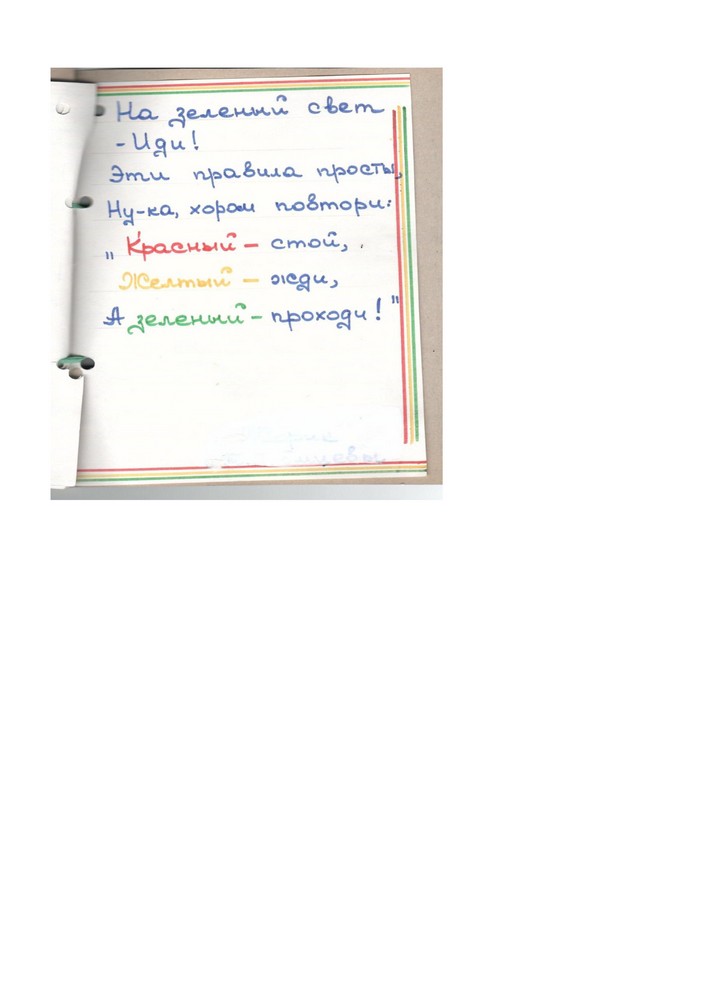 На зеленый свет
- Иди!
Эти правила просты,
Ну-ка, хором повтори:
„Красный - стой,
Желтый - жди,
А зеленый - проходи!"